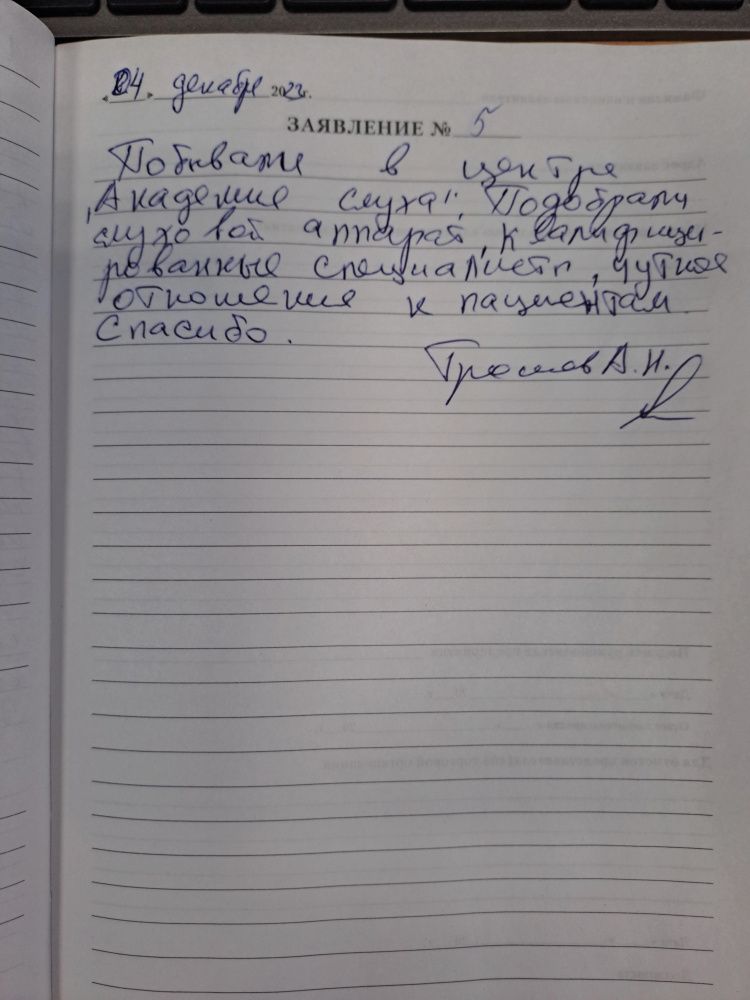 «04» декабря 2023г.
ЗАЯВЛЕНИЕ № 5
Побывали в центре
"Академие слуха". Подобрали
слуховой аппарат, квалифици-
рованные специалисты, чуткое
отношение к пациентам.
Спасибо.
А.Н.